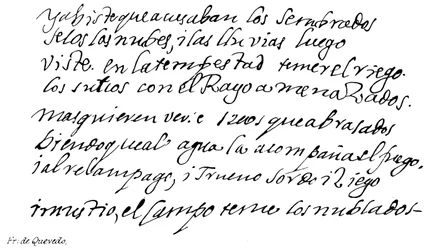 ya biste que acusaban los sembrados
secos las nubes, i las lluvias luego
viste. en la tempestad temer el riego.
los surcos con el Rayo amenazados.
mas quieren verse secos que abrasados
biendo que al agua la acompaña el fuego,
i al relampago, i Trueno sordo i ziego
i mustio, el campo teme los nublados–
Fr. de Quevedo.